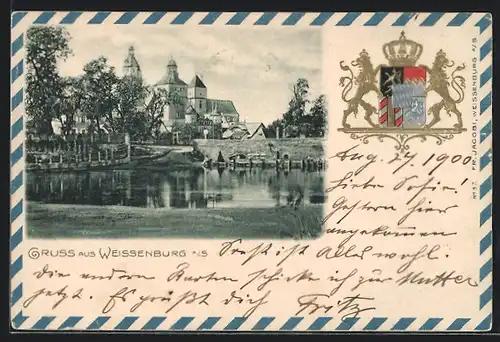 Aug. 27 1900.
Liebe Sofie.
Gestern hier
angekommen
GRUSS AUS WEISSENBURG A/S
Sonst ist Alles wohl.
Die andern Karten schicke ich zur Mutter
jetzt. Es grüßt dich Fritz
No 37. FR. JACOBI, WEISSENBURG A/S.